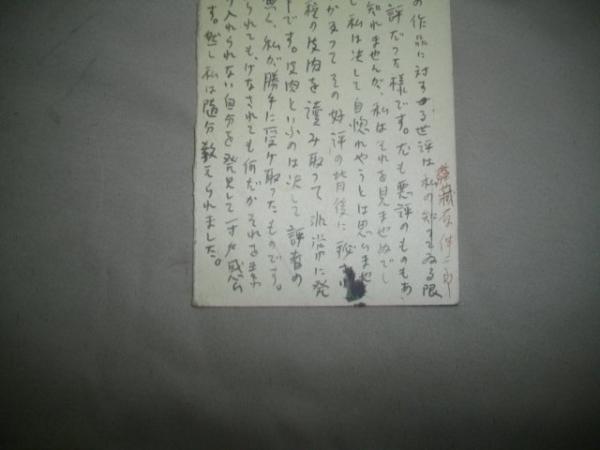 の作品に対する世評は私の知りゐる限
評だった様です。尤も悪評のものもあ
知れませんが、私はそれを見ませぬでし
し私は決して自惚れやうとは思ひませ
かえつてその好評の背後に
種の皮肉を読み取つて 発
です。皮肉といふのは決して評者の
無く、私が勝手に受け取つたものです。
られても、けなされても何だかそれを素
入れられない自分を発見して一寸
す。然し私は随分教えられました。